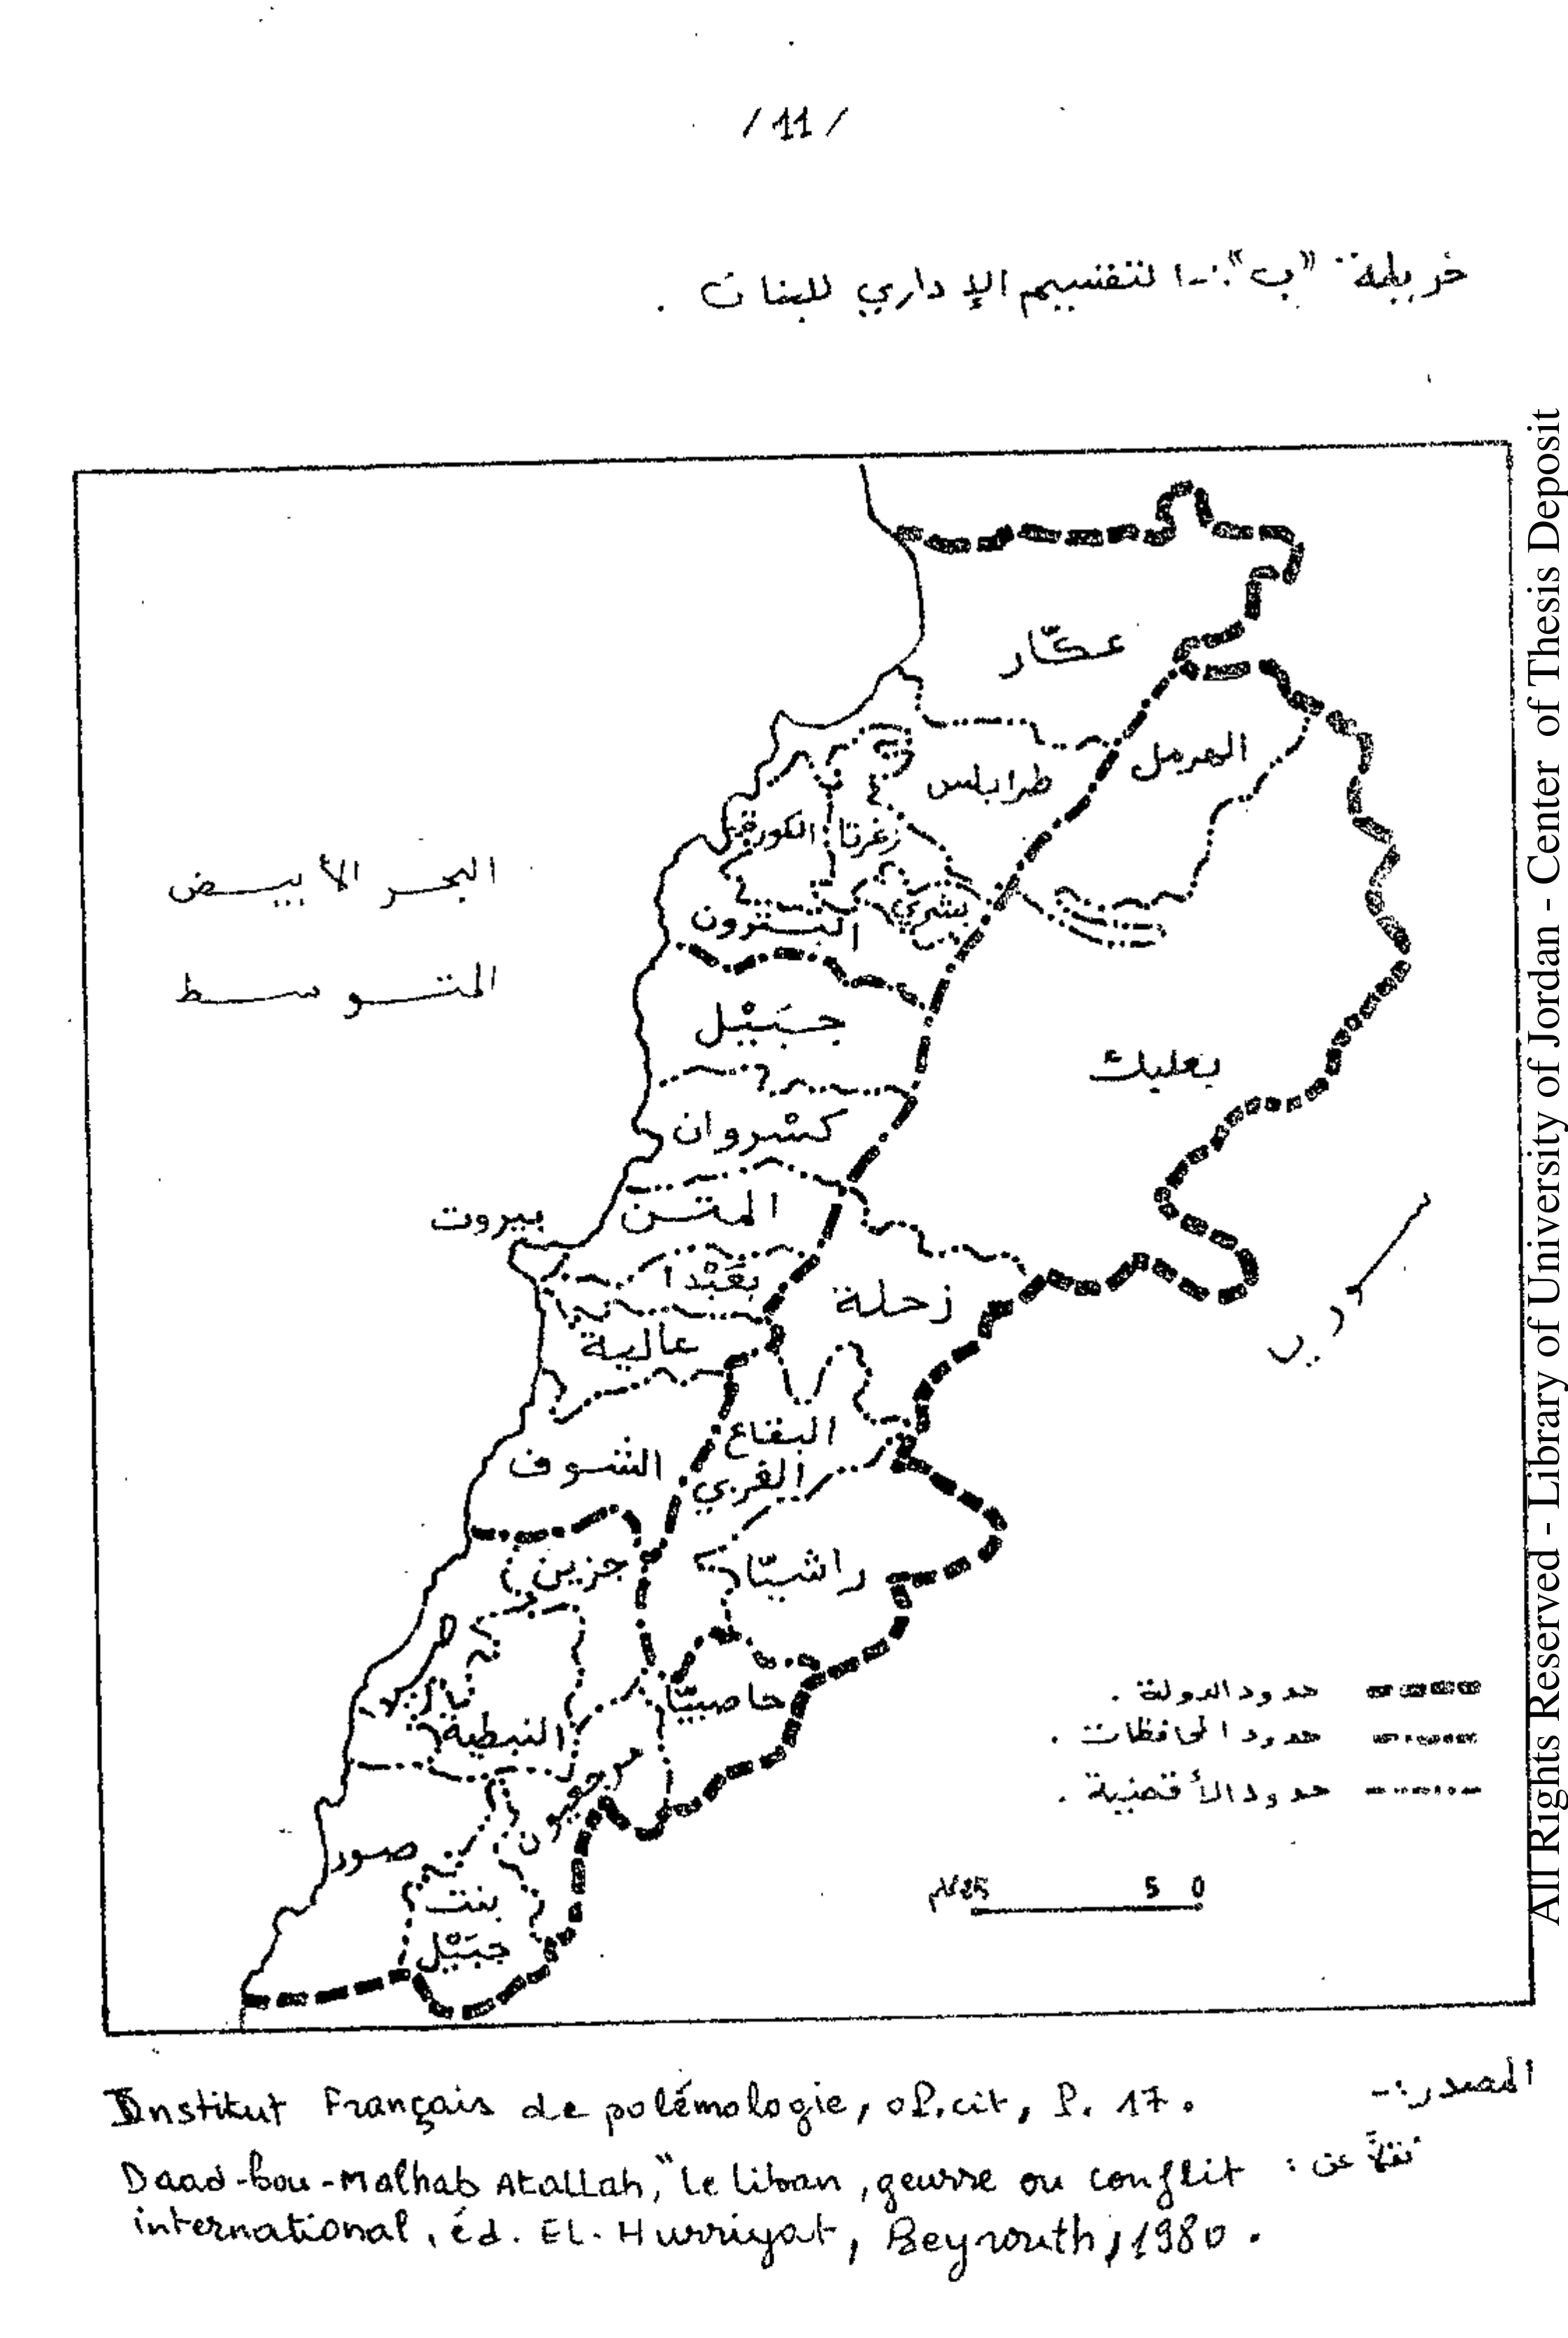 / 11 /
خريطة "ب":- التقسيم الإداري للبنان .
عكّار
الهرمل
طرابلس
زغرتا
الكورة
بشري
البترون
البحر الأبيض
المتوسط
جبَيْل
بعلبك
كسْروان
المتن
بيروت
بعَبْدا
زحلة
عالية
البقاع
الغربي
الشوف
جزين
راشيّا
حاصبيّا
النبطية
مرجعيون
صور
بنت
جبَيْل
حدود الدولة .
حدود المحافظات .
حدود الأقضية .
0 5 25 كلم
المصدر:-
Institut Français de polémologie, op.cit, P. 17.
نقلاً عن :
Daad-bou-Malhab Atallah, "le liban, geurre ou conflit
international, éd. EL-Hurriyat, Beyrouth, 1980.
All Rights Reserved - Library of University of Jordan - Center of Thesis Deposit